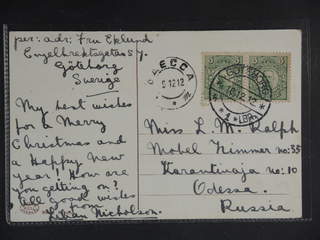 per: adr: Fru Eklund
Engelbrektsgatan 57.
Göteborg
Sverige
My best wishes
for a Merry
Christmas and
a Happy new
year! How are
you getting on?
All good wishes
from
Lilian Nicholson.
ОДЕССА
9 12 12
GÖTEBORG
10.12.12
5
5
Miss L. M. Ralph
Nobel Zimmer no: 35
Karantinaja no: 10
Odessa.
Russia